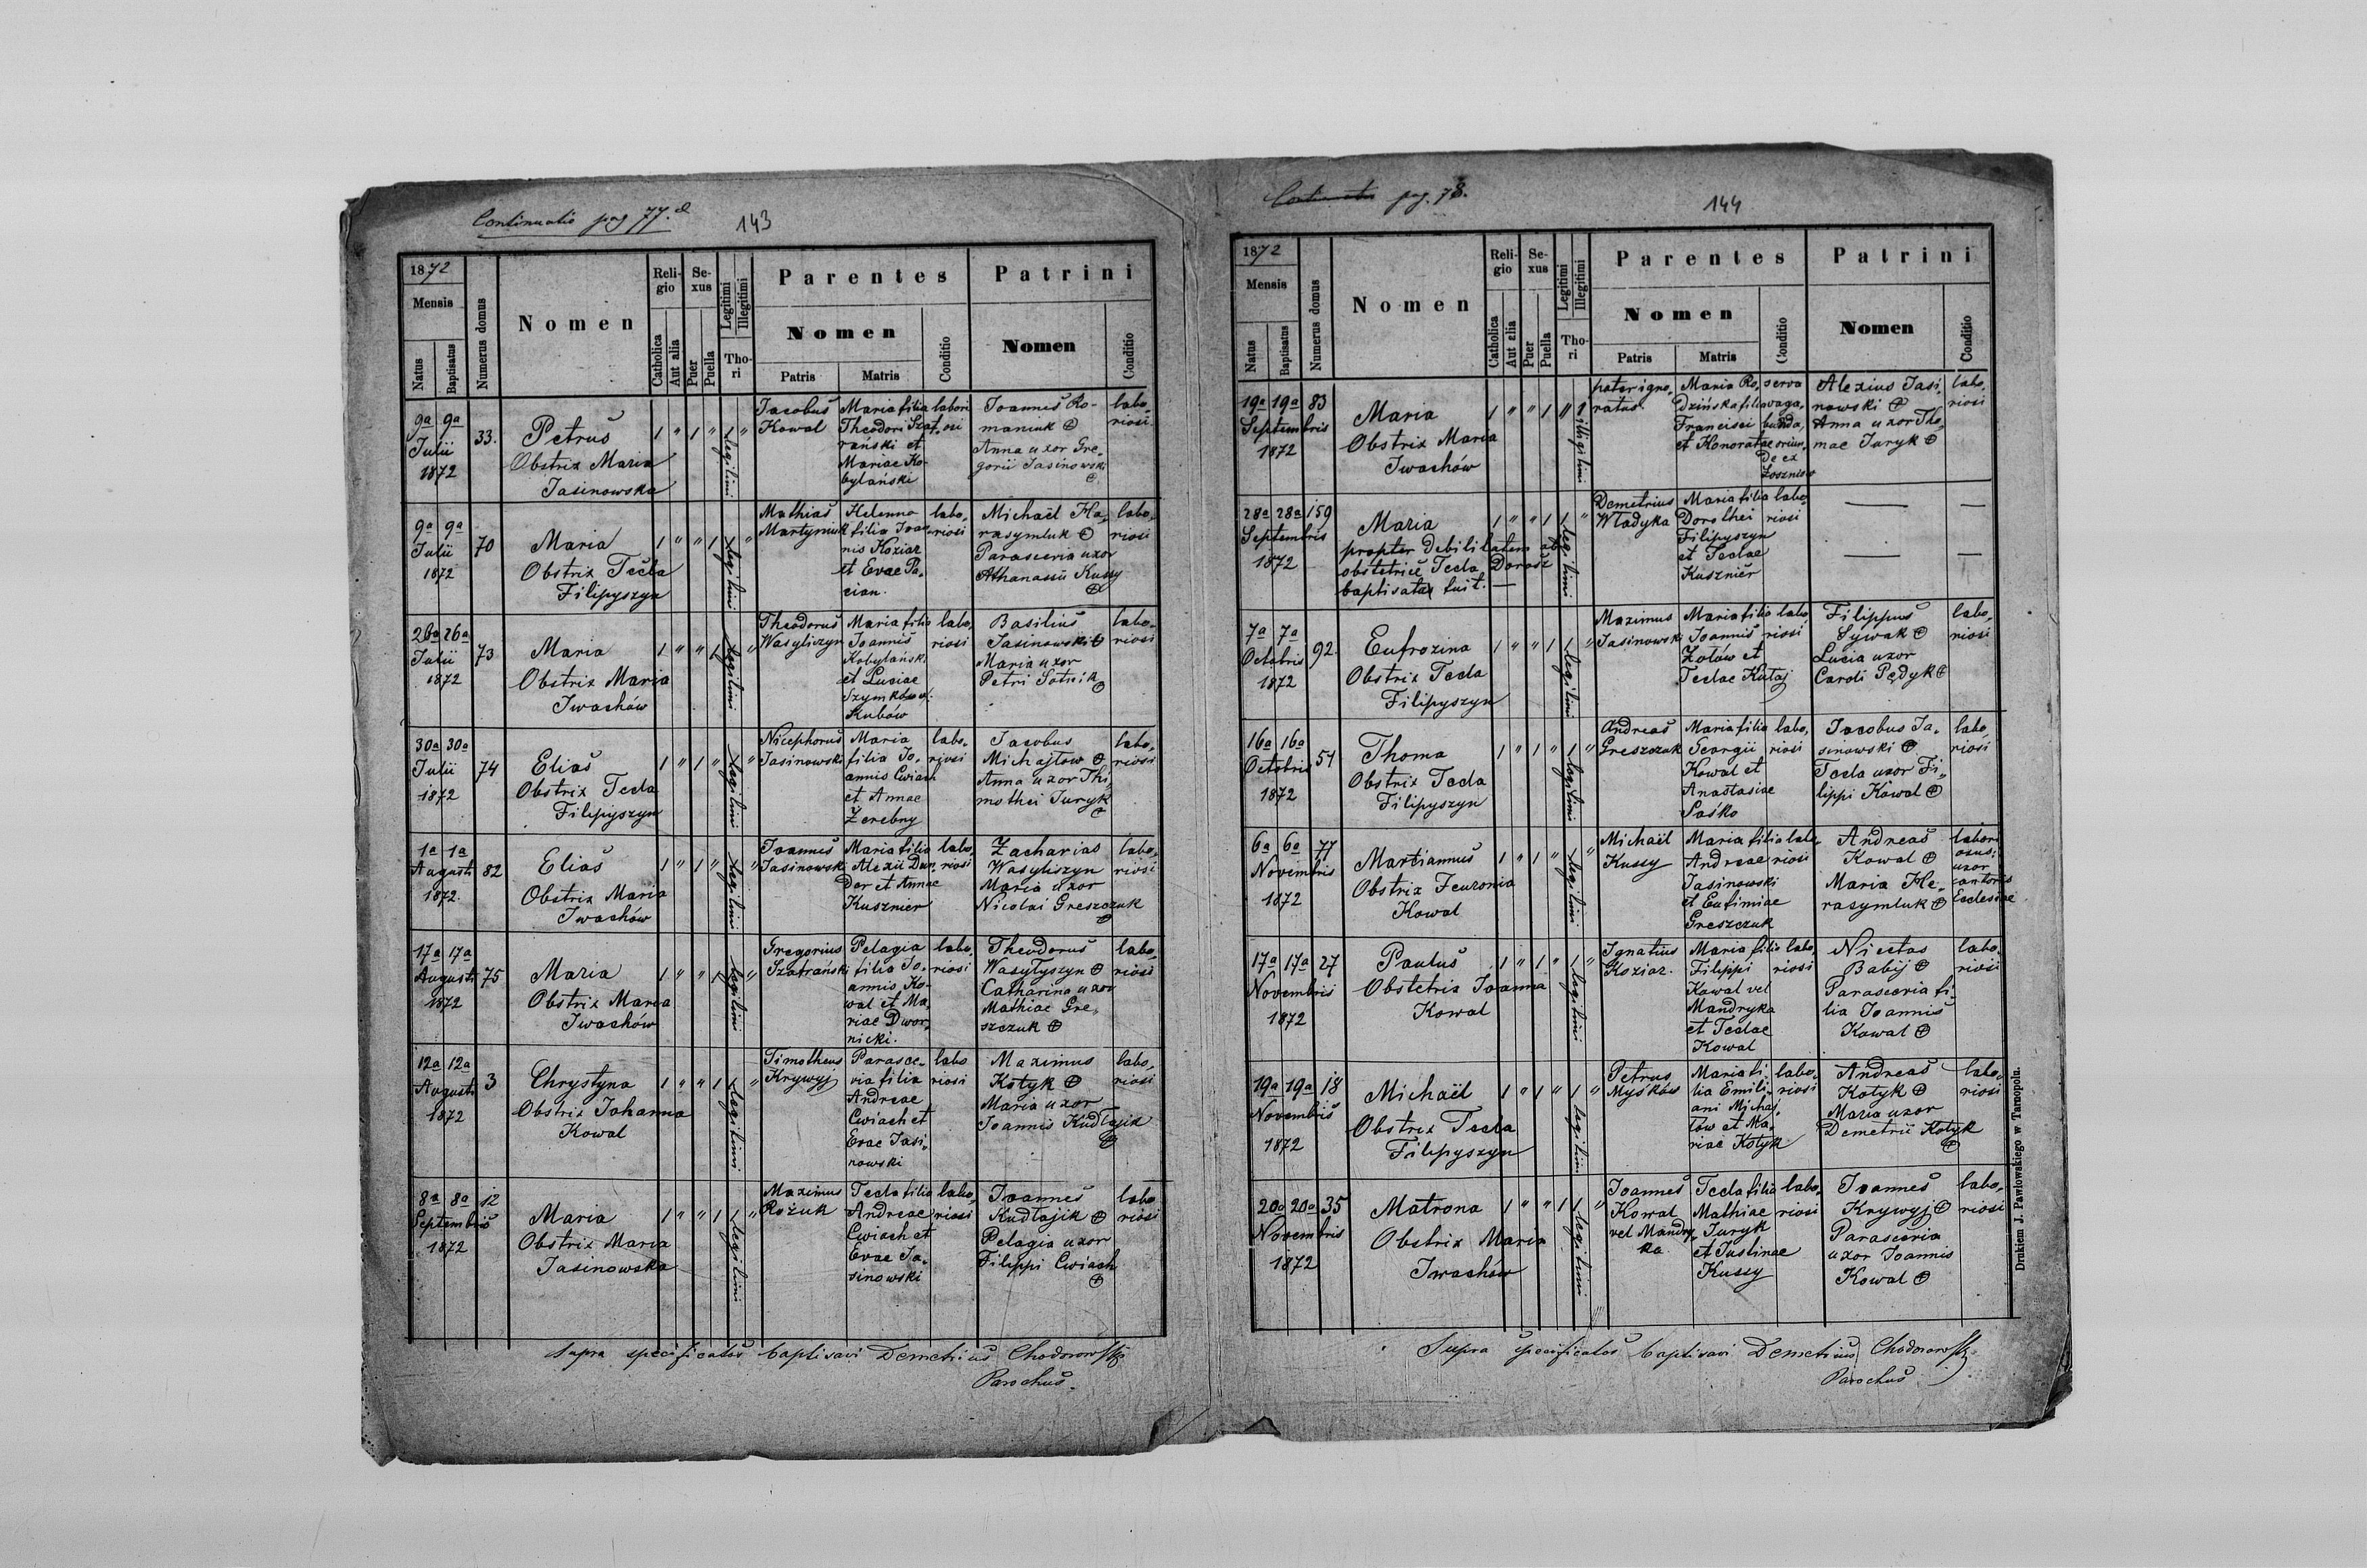 Continuatio pag 77.
143
1872
Mensis
Natus
Baptisatus
Numerus domus
Nomen
Religio
Catholica
Aut alia
Sexus
Puer
Puella
Legitimi
Illegitimi
Thori
Parentes
Nomen
Patris
Matris
Conditio
Patrini
Nomen
Conditio
9a 9a
Julii
1872
33.
Petrus
Obstrix Maria
Jasinowska
1 " 1 " 1 "
legitimi
Jacobus
Kowal
Maria filia
Theodori Szat,
rański et
Mariae Ko-
bylański
labori
osi
Joannes Ro-
maniuk ⊕
Anna uxor Gre,
gorii Jasinowski
⊕
labo,
riosi
9a 9a
Julii
1872
70
Maria
Obstrix Tecla
Filipyszyn
1 " " 1 1 "
legitimi
Mathias
Martyniuk
Helenna
filia Joan
nis Koziar
et Evae Pa,
cian.
labo,
riosi
Michaël Ha,
rasymluk ⊕
Parasceria uxor
Athanasii Kussy
⊕
labo,
riosi
26a 26a
Julii
1872
73
Maria
Obstrix Maria
Iwachów
1 " " 1 1 "
legitimi
Theodorus
Wasyliszyn
Maria filia
Joannis
Kobylański
et Luciae
Szymków v.
Kubów
labo,
riosi
Basilius
Jasinowski ⊕
Maria uxor
Petri Sotnik
⊕
labo,
riosi
30a 30a
Julii
1872
74
Elias
Obstrix Tecla
Filipyszyn
1 " 1 " 1 "
legitimi
Nicephorus
Jasinowski
Maria
filia Jo,
annis Cwiach
et Annae
Żerebny
labo,
riosi
Jacobus
Michajłow ⊕
Anna uxor Thi,
mothei Juryk
⊕
labo,
riosi
1a 1a
Augusti
1872.
82
Elias
Obstrix Maria
Iwachów
1 " 1 " 1 "
legitimi
Joannes
Jasinowski
Maria filia
Alexii Dun,
der et Annae
Kusznier
labo,
riosi
Zacharias
Wasyliszyn
Maria uxor
Nicolai Greszczuk
⊕
labo,
riosi
17a 17a
Augusti
1872
75
Maria
Obstrix Maria
Iwachów
1 " " 1 1 "
legitimi
Gregorius
Szatrański
Pelagia
filia Jo,
annis Ko-
wal et Ma,
riae Dwor,
nicki.
labo,
riosi
Theodorus
Wasyłyszyn ⊕
Catharina uxor
Mathiae Gre,
szczuk ⊕
labo,
riosi
12a 12a
Augusti
1872
3
Chrystyna
Obstrix Johanna
Kowal
1 " " 1 1 "
legitimi
Timotheus
Krywyj
Parasce-
via filia
Andreae
Cwiach et
Evae Jasi,
nowski
labo
riosi
Maximus
Kotyk ⊕
Maria uxor
Joannis Kudłajik
⊕
labo,
riosi
8a 8a
Septembris
1872
12
Maria
Obstrix Maria
Jasinowska
1 " " 1 1 "
legitimi
Maximus
Rożuk
Tecla filia
Andreae
Cwiach et
Evae Ja,
sinowski
labo,
riosi
Joannes
Kudłajik ⊕
Pelagia uxor
Filippi Cwiach
⊕
labo
riosi
Supra specificatos baptisavi Demetrius Chodorowski
Parochus.
Continuatio pag. 78.
144
1872
Mensis
Natus
Baptisatus
Numerus domus
Nomen
Religio
Catholica
Aut alia
Sexus
Puer
Puella
Legitimi
Illegitimi
Thori
Parentes
Nomen
Patris
Matris
Conditio
Patrini
Nomen
Conditio
19a 19a
Septembris
1872
83
Maria
Obstrix Maria
Iwachów
1 " " 1 " 1
illigitimi
pater igno,
ratus
Maria Ro,
dzińska filia
Francisci
et Honoratae
serva
vaga,
bunda,
oriun,
de ex
Łoszniow
Alexius Jasi,
nowski ⊕
Anna uxor Tho,
mae Juryk ⊕
labo,
riosi
28a 28a
Septembris
1872
159
Maria
propter debilitatem ab
obstetrice Tecla Dorosz
baptisata fuit. —
1 " " 1 1 "
legitimi
Demetrius
Władyka
Maria filia
Dorothei
Filipyszyn
et Teclae
Kusznier
labo,
riosi
— —
— —
7a 7a
Octobris
1872
92.
Eufrozina
Obstrix Tecla
Filipyszyn
1 " " 1 1 "
legitimi
Maximus
Jasinowski
Maria filia
Joannis
Zołów et
Teclae Kutaj
labo,
riosi
Filippus
Sywak ⊕
Lucia uxor
Caroli Pędyk ⊕
labo,
riosi
16a 16a
Octobris
1872
51
Thoma
Obstrix Tecla
Filipyszyn
1 " 1 " 1 "
legitimi
Andreas
Greszczuk
Maria filia
Georgii
Kowal et
Anastasiae
Saśko
labo,
riosi
Jacobus Ja,
sinowski ⊕
Tecla uxor Fi,
lippi Kowal ⊕
labo
riosi
6a 6a
Novembris
1872
77
Martiannus
Obstrix Feuronia
Kowal
1 " 1 " 1 "
legitimi
Michaël
Kussy
Maria filia
Andreae
Jasinowski
et Eufimiae
Greszczuk
labo,
riosi
Andreas
Kowal ⊕
Maria He,
rasymluk ⊕
labori
osus;
uxor
cantoris
Ecclesiae
17a 17a
Novembris
1872
27
Paulus
Obstetrix Joanna
Kowal
1 " 1 " 1 "
legitimi
Ignatius
Koziar.
Maria filia
Filippi
Kowal vel
Mandryka
et Teclae
Kowal
labo,
riosi
Nicetas
Babij ⊕
Parasceria fi,
lia Joannis
Kowal ⊕
labo,
riosi
19a 19a
Novembris
1872
18
Michaël
Obstrix Tecla
Filipyszyn
1 " 1 " 1 "
legitimi
Petrus
Myśków
Maria fi,
lia Emili,
ani Michaj,
łów et Ma,
riae Kotyk
labo,
riosi
Andreas
Kotyk ⊕
Maria uxor
Demetrii Kotyk
⊕
labo,
riosi
20a 20a
Novembris
1872
35
Matrona
Obstrix Maria
Iwachów
1 " " 1 1 "
legitimi
Joannes
Kowal
vel Mandry,
ka
Tecla filia
Mathiae
Juryk
et Justinae
Kussy
labo,
riosi
Joannes
Krywyj ⊕
Parasceria
uxor Joannis
Kowal ⊕
labo,
riosi
Supra specificatos baptisavi Demetrius Chodorowski
Parochus
Drukiem J. Pawłowskiego w Tarnopolu.